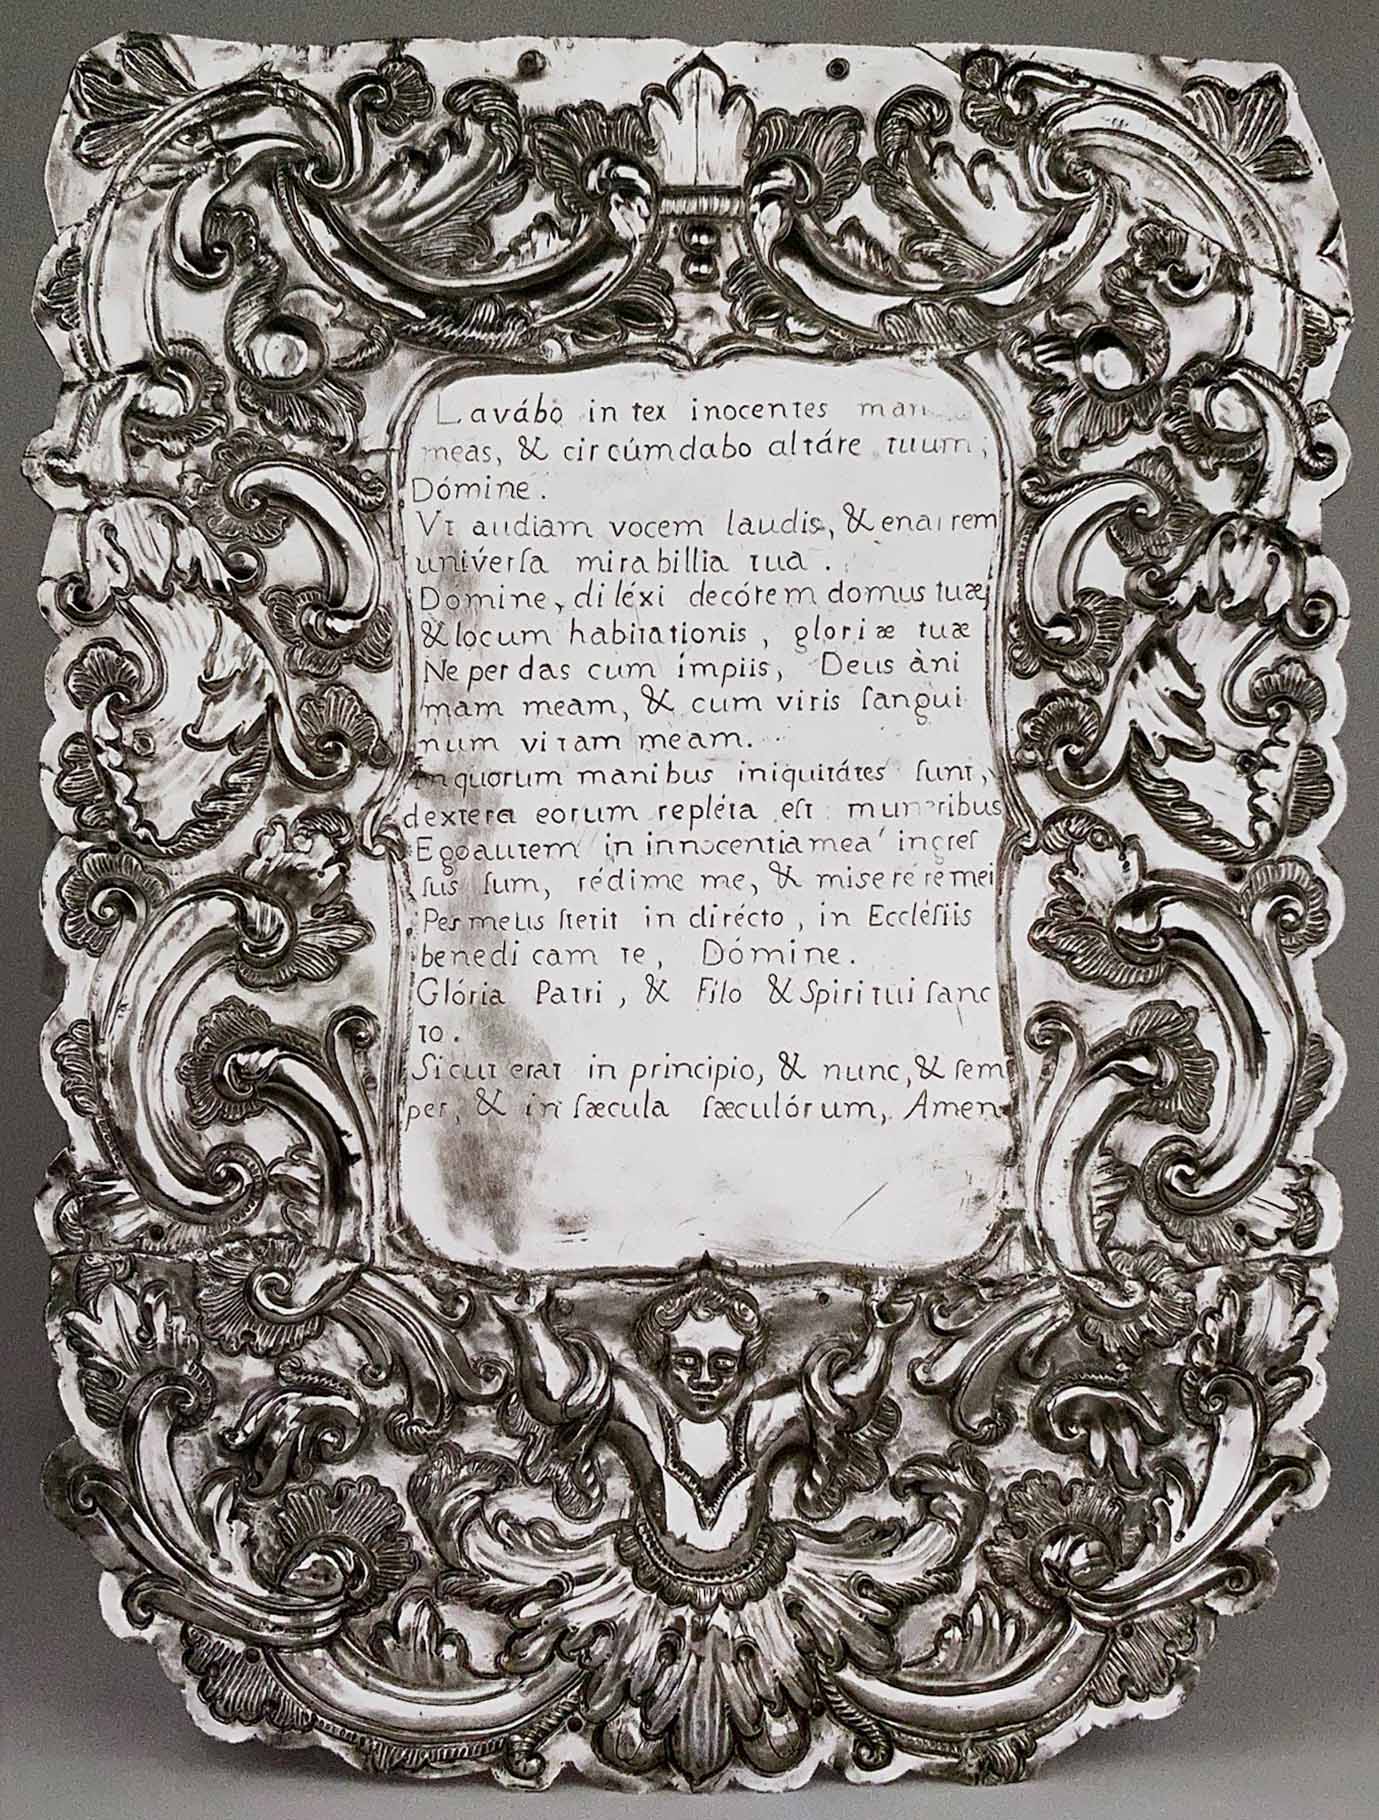 Lavábo in tex inocentes man
meas, & circúmdabo altáre tuum;
Dómine.
Vt audiam vocem laudis, & enatrem
univérſa mirabillia tua.
Dómine, diléxi decórem domus tuæ,
& locum habitationis, gloriæ tuæ
Ne perdas cum ímpiis, Deus àni
mam meam, & cum viris ſangui
num vitam meam.
In quorum manibus iniquitátes ſunt,
dextera eorum repléta eſt muneribus
Ego autem in innocentia mea ingreſ
ſus ſum, rédime me, & miseréré mei
Pes meus ſtetit in dirécto, in Eccléſiis
benedicam te, Dómine.
Glória Patri, & Filo & Spiritui ſanc
to.
Sicut erat in principio, & nunc, & ſem
per, & in ſæcula ſæculórum, Amen